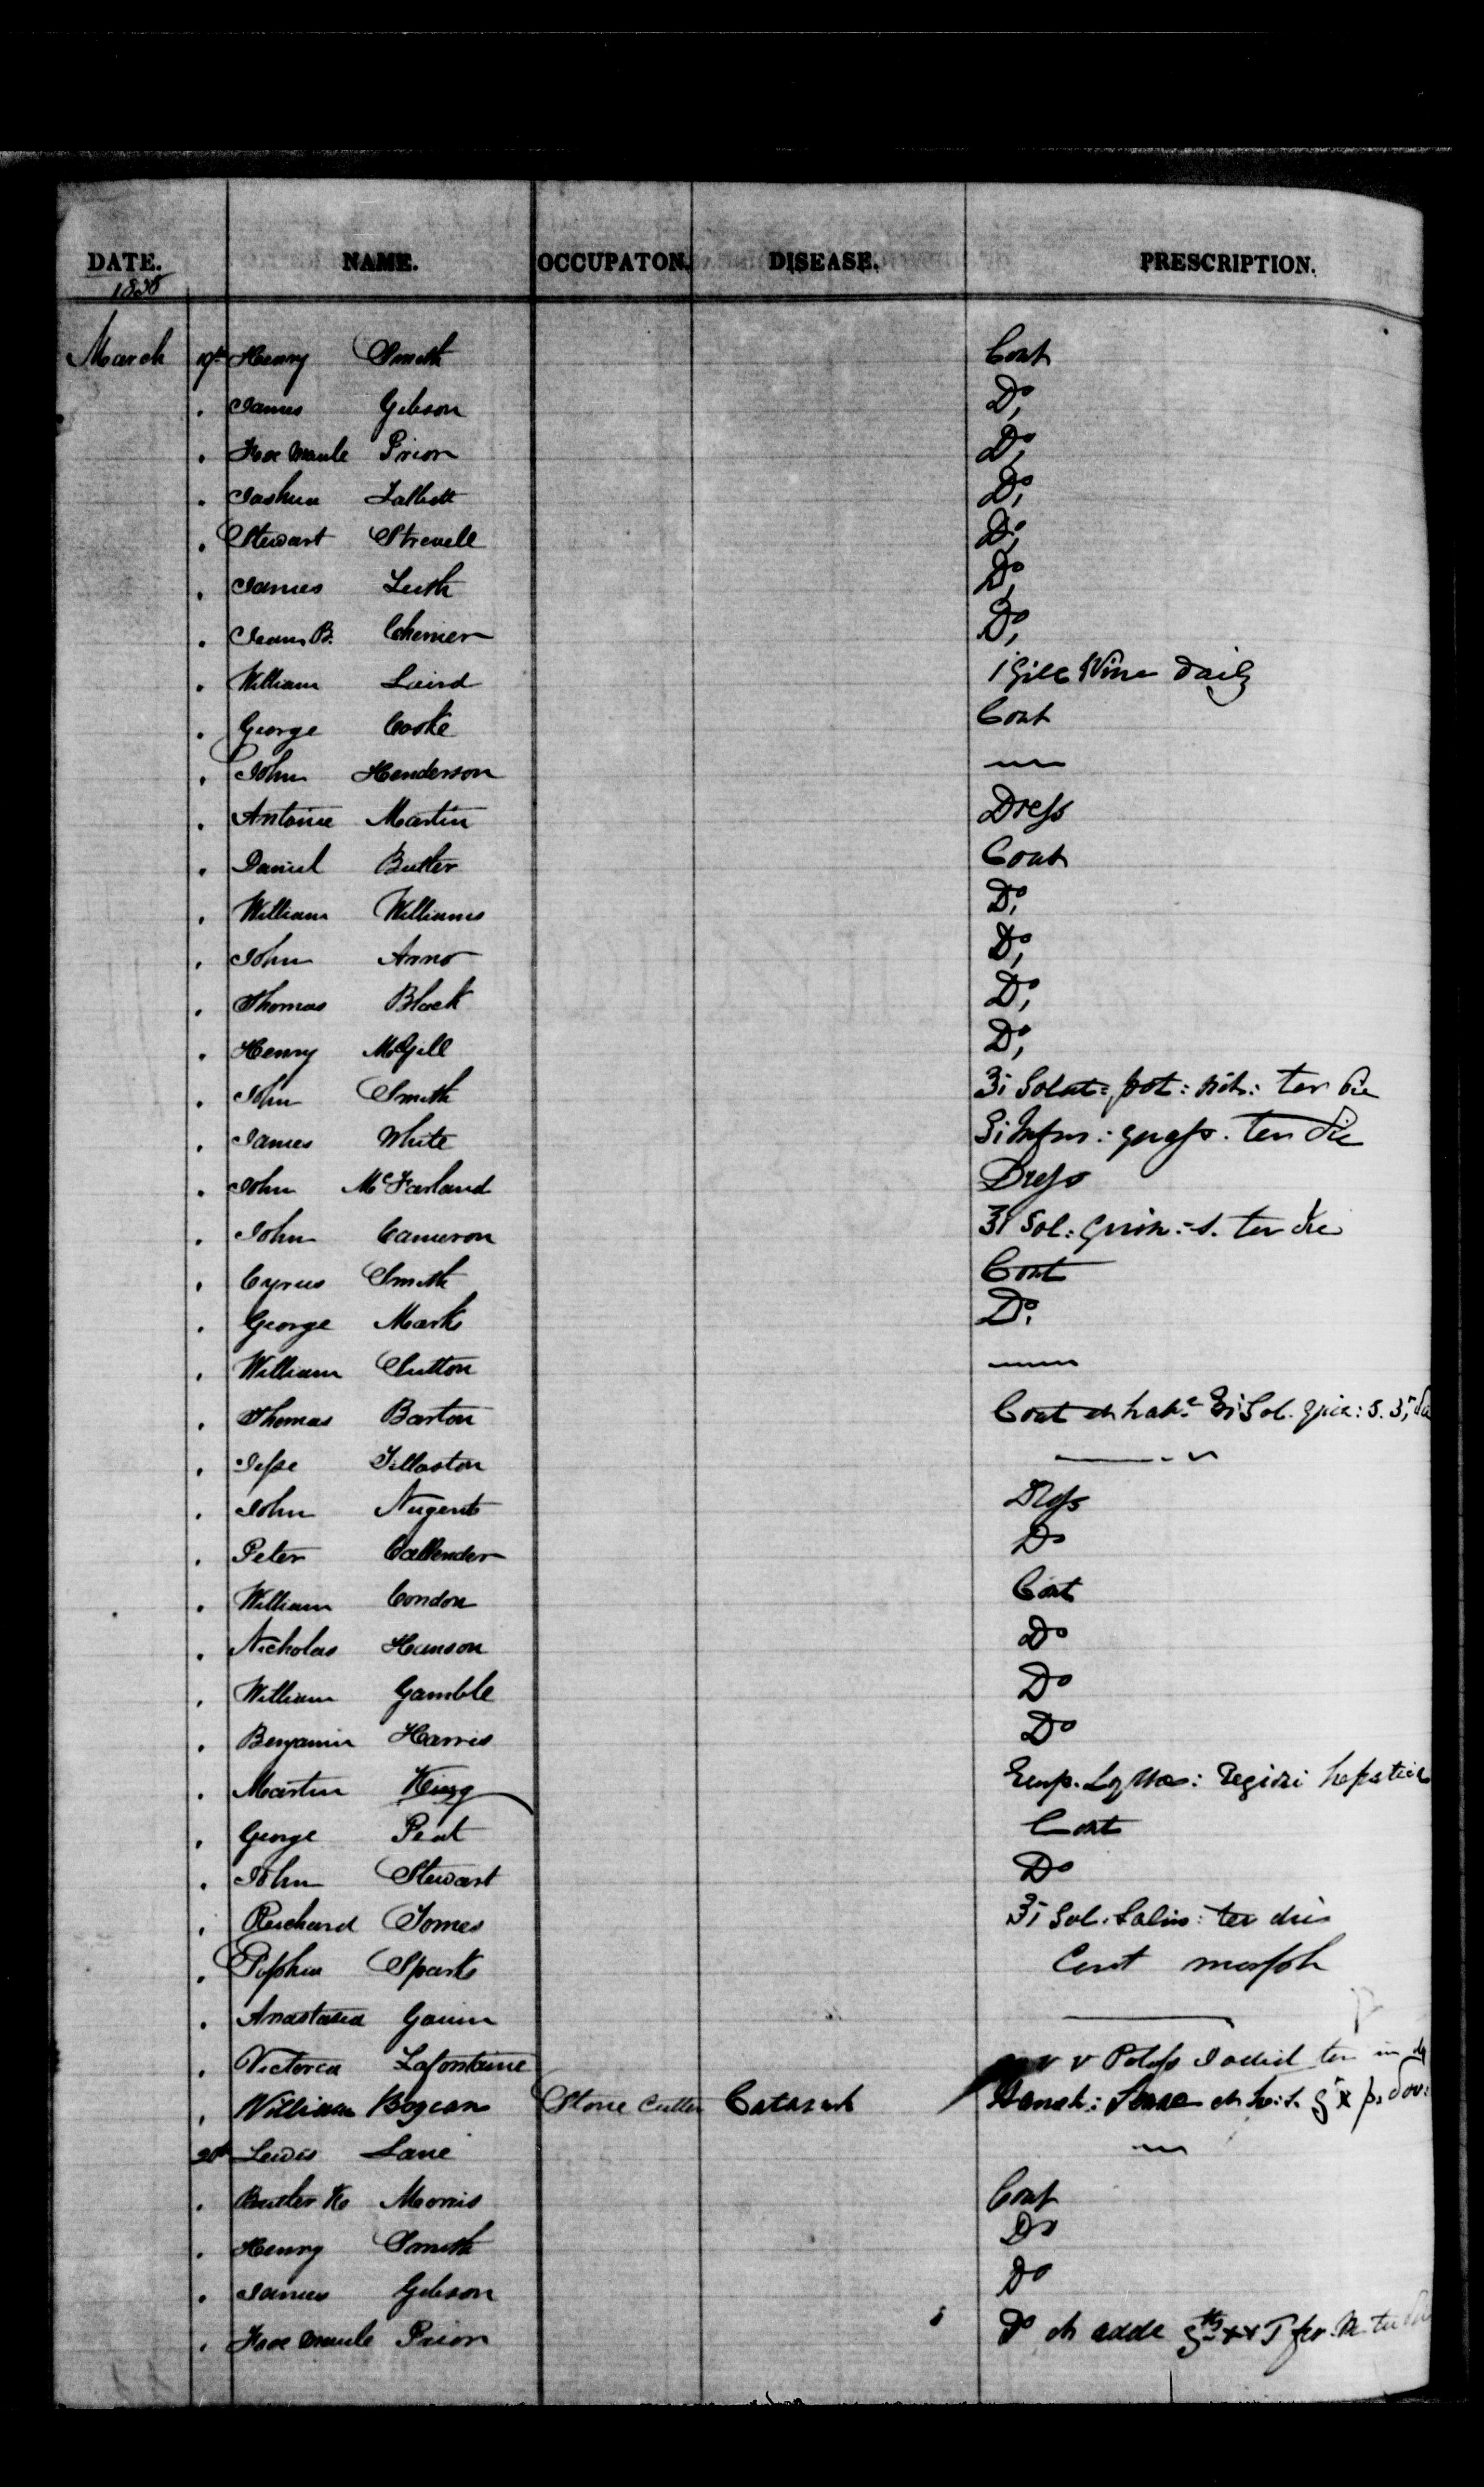 DATE. NAME. OCCUPATON. DISEASE. PRESCRIPTION.
March Henry Smith Cont
James Gibson Do
Prior Do
Joshua Do
Stewart Strevell Do
James Leith Do
Jean B. Chenier Do
William Laird 1 Gill Wine Daily
George Cooke Cont
John Henderson
Antoine Martin Dress
Daniel Butler Cont
William Williams Do
John Anno Do
Thomas Black Do
Henry McGill Do
John Smith ʒi Solut: pot: nit: ter die
James White ter die
John McFarland Dress
John Cameron ʒi Sol: Quin: S. ter die
Cyrus Smith Cont
George Marks Do
William Sutton
Thomas Barton Cont
Jesse Tillaston
John Nugent Dress
Peter Callender Do
William Condon Cont
Nicholas Hanson Do
William Gamble Do
Benjamin Harris Do
Martin King Emp. Lyttae: Regioni hepatica
George Peat Cont
John Stewart Do
Richard Tomes ʒi Sol. Salin: ter die
Sparks Cont morph
Anastasia
Victoria Lafontaine
William Stone Cutter
20th Lewis Lane
Butler Morris Cont
Henry Smith Do
James Gibson Do
Prior Do et adde